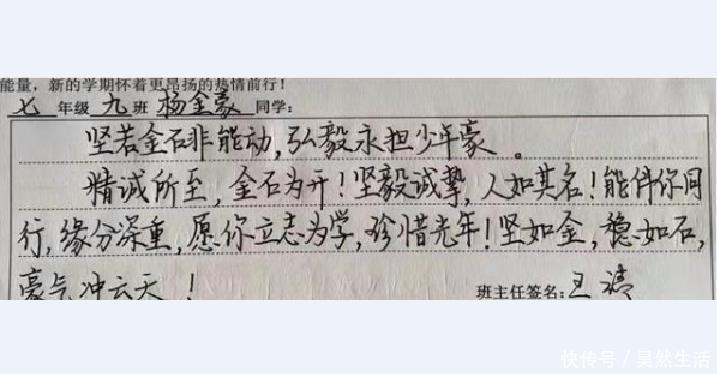 能量，新的学期怀着更昂扬的热情前行！
七 年级 九 班 杨金豪 同学：
坚若金石非能动,弘毅永担少年豪。
精诚所至,金石为开!坚毅诚挚,人如其名!能伴你同
行,缘分深重,愿你立志为学,珍惜光年!坚如金,稳如石,
豪气冲云天!
班主任签名:王
快传号/昊然生活